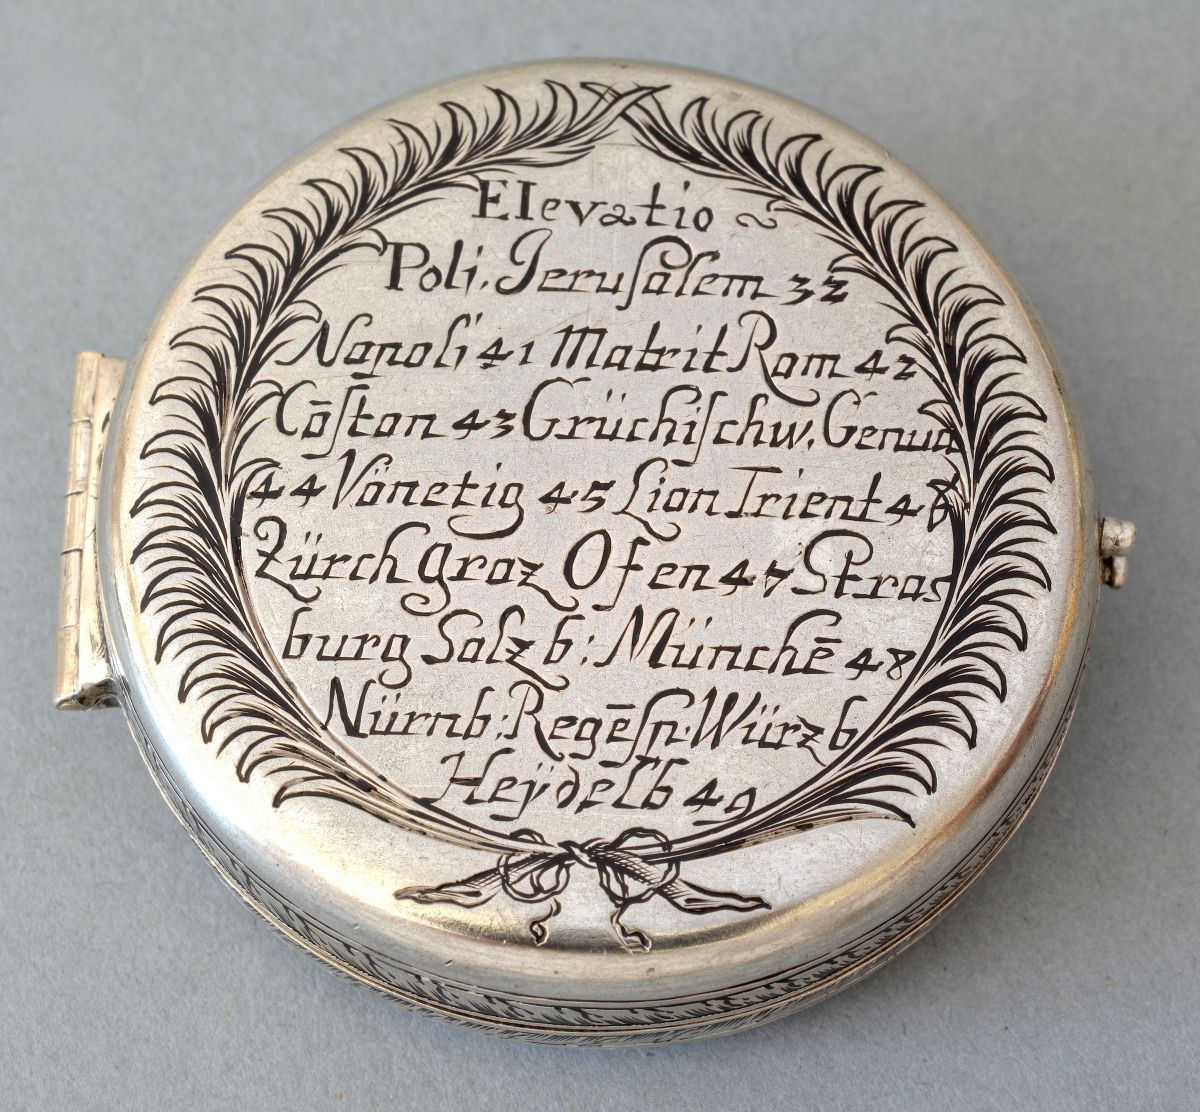 Elevatio ~
Poli. Jeruſalem 32
Napoli 41 Matrit Rom 42
Cōſtan 43 Grüchiſchw. Genua
44 Vönetig 45 Lion Trient 46
Zürch Graz Ofen 47 Stras
burg Salzb: Münchē 48
Nürnb: Regēſp: Würzb
Heÿdelb 49